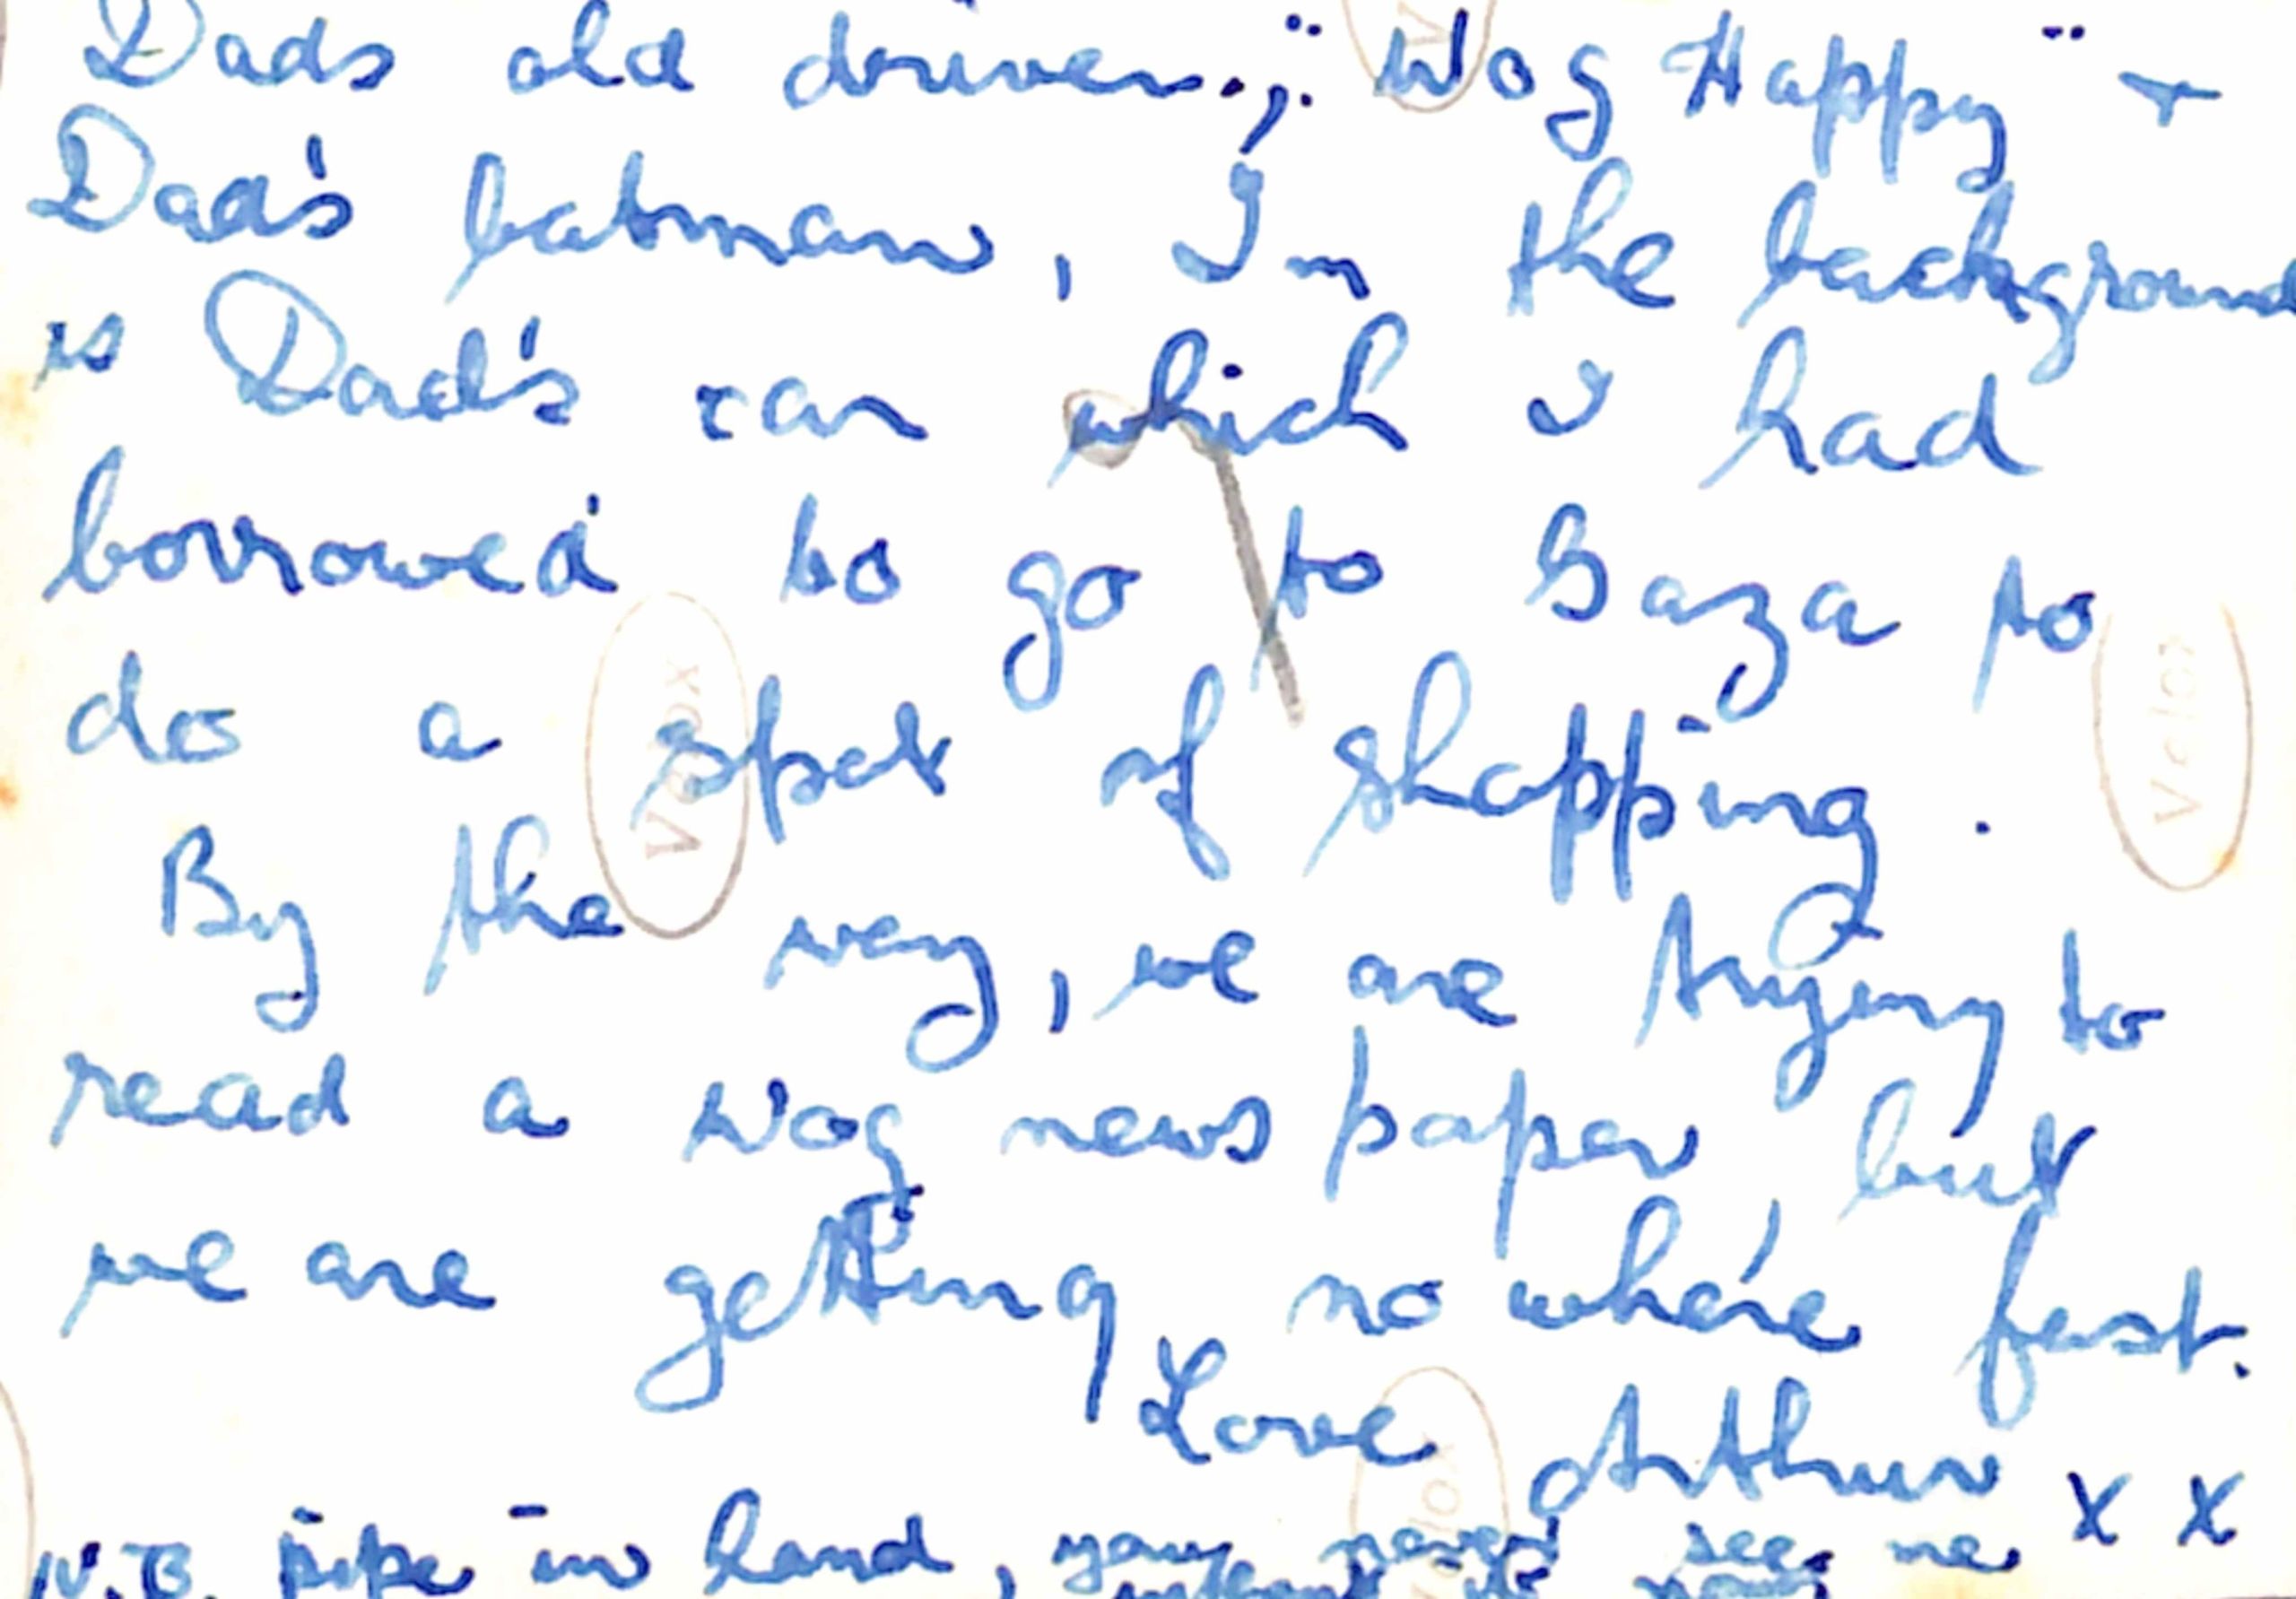 Dads old driver., "Wog Happy" +
Dad's batman, In the background
is Dad's car which I had
borrowed to go to Gaza to
do a spot of shopping.
By the way, we are trying to
read a Wog news paper but
we are getting no where fast.
Love Arthur x x
N.B. pipe in hand, you never see me
without it now
Velox
Velox
Velox